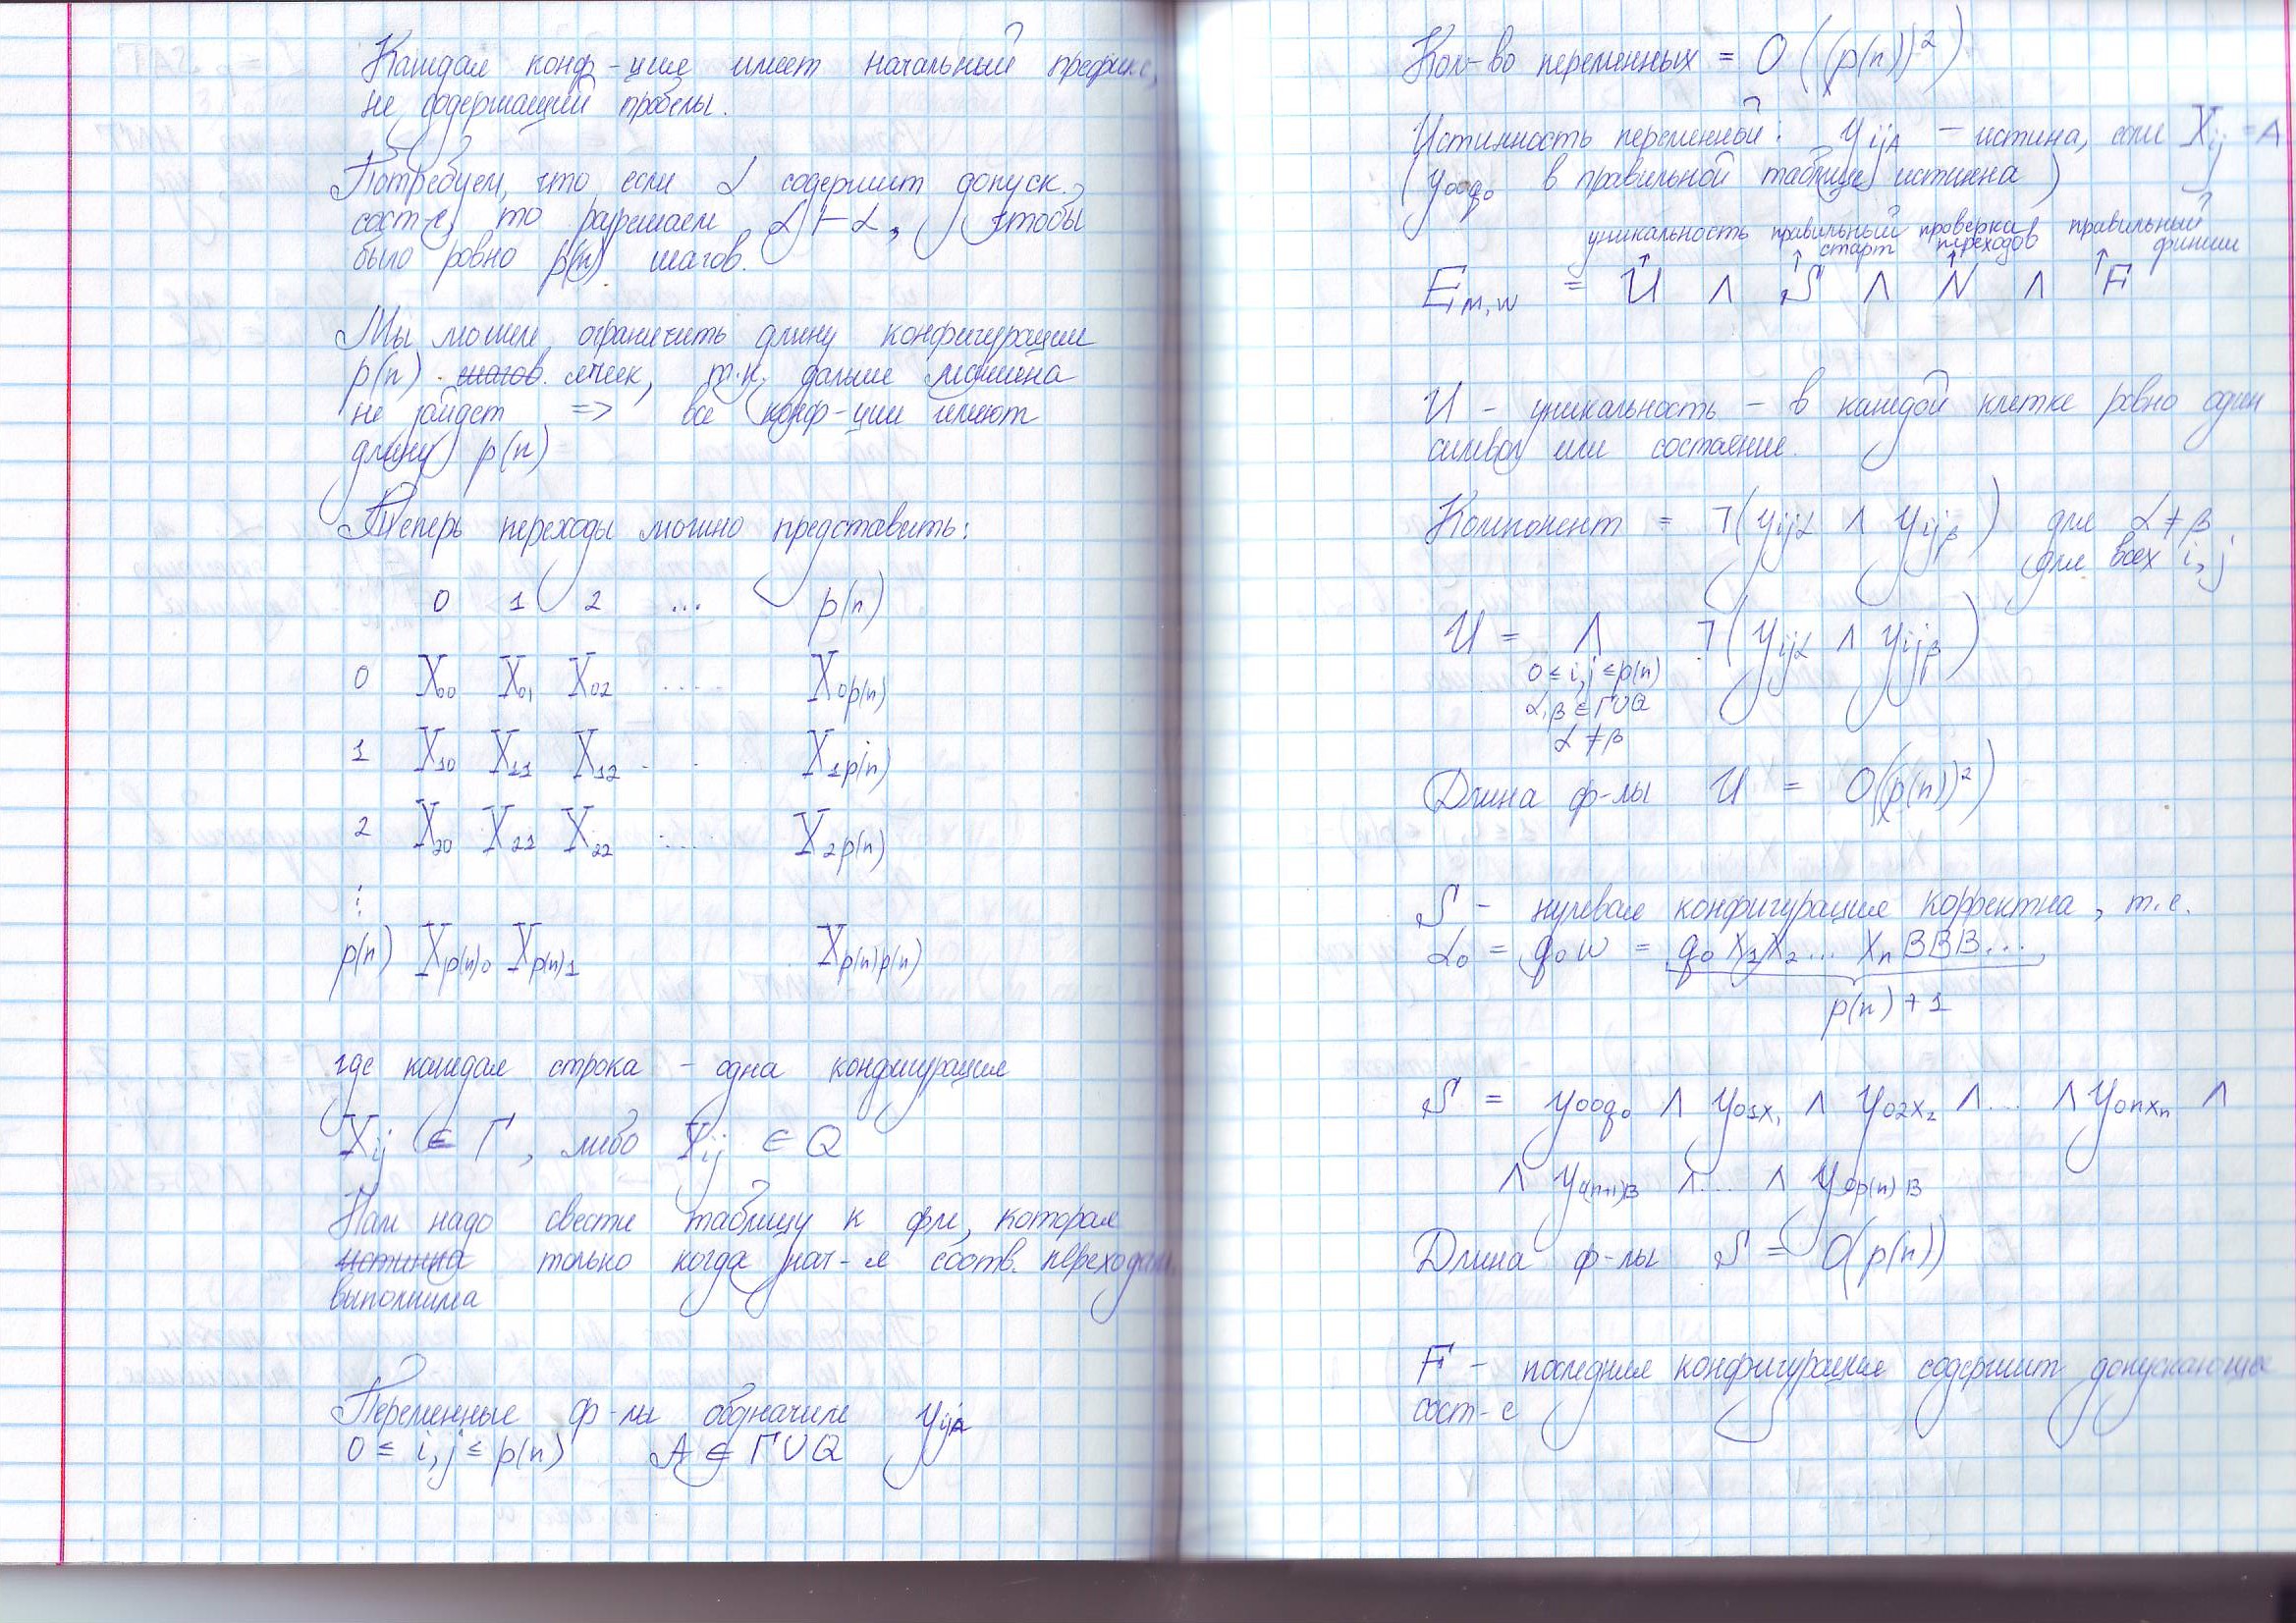 Каждая конф-ция имеет начальный префикс,
не содержащий пробелы.
Потребуем, что если α содержит допуск.
сост-е, то разрешаем α ⊢ α, чтобы
было ровно p(n) шагов.
Мы можем ограничить длину конфигурации
p(n) шагов ячеек, т.к. дальше машина
не зайдет => все конф-ции имеют
длину p(n)
Теперь переходы можно представить:
0 1 2 ... p(n)
0 X₀₀ X₀₁ X₀₂ .... X₀p(n)
1 X₁₀ X₁₁ X₁₂ . . X₁p(n)
2 X₂₀ X₂₁ X₂₂ .... X₂p(n)
⋮
p(n) Xp(n)0 Xp(n)1 Xp(n)p(n)
где каждая строка – одна конфигурация
Xij ∈ Γ, либо Xij ∈ Q
Нам надо свести таблицу к фле, которая
истинна только когда знач-я соотв. переходам
выполнима
Переменные ф-лы обозначим yijA
0 ≤ i, j ≤ p(n) A ∈ Γ∪Q
Кол-во переменных = O((p(n))²)
Истинность переменной: yijA – истина, если Xij = A
(y00q₀ в правильной таблице истинна)
уникальность правильный проверка правильный
старт переходов финиш
E M,w = U ∧ S ∧ N ∧ F
U – уникальность – в каждой клетке ровно один
символ или состояние.
Компонент = ¬(yijα ∧ yijβ) для α ≠ β
для всех i, j
U = ∧ ¬(yijα ∧ yijβ)
0 ≤ i, j ≤ p(n)
α, β ∈ Γ∪Q
α ≠ β
Длина ф-лы U = O((p(n))²)
S – нулевая конфигурация корректна, т.е.
α₀ = q₀w = q₀ X₁X₂... Xₙ BBB...
p(n) + 1
S = y00q₀ ∧ y01X₁ ∧ y02X₂ ∧ ... ∧ y0nXₙ ∧
∧ y0(n+1)B ∧ ... ∧ y0p(n)B
Длина ф-лы S = O(p(n))
F – последняя конфигурация содержит допускающее
сост-е